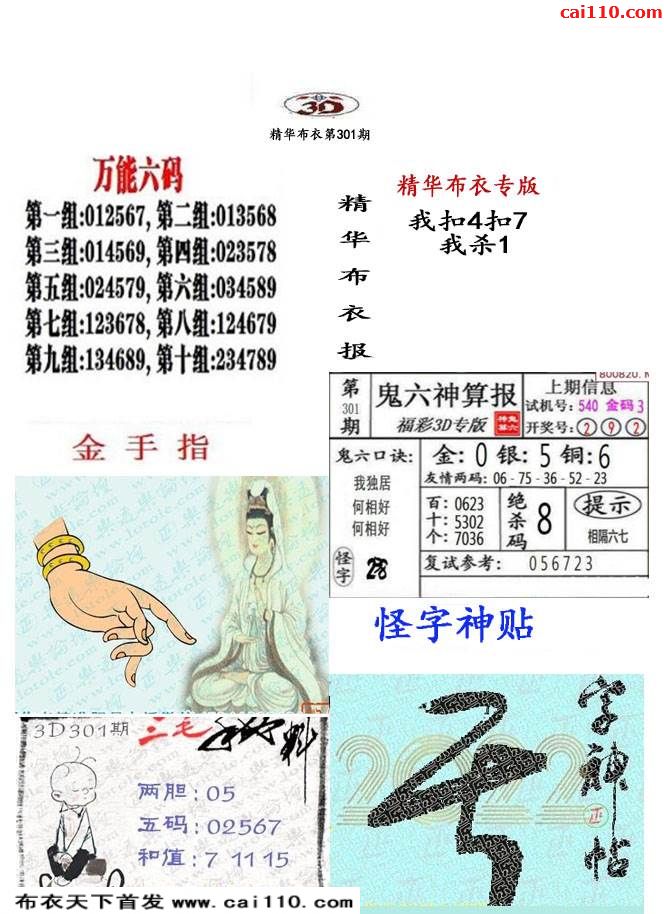 cai110.com
3D
精华布衣第301期
万能六码
第一组:012567,第二组:013568
第三组:014569,第四组:023578
第五组:024579,第六组:034589
第七组:123678,第八组:124679
第九组:134689,第十组:234789
精华布衣报
精华布衣专版
我扣4扣7
我杀1
金手指
800820.
第301期
鬼六神算报
福彩3D专版
上期信息
试机号:540 金码3
开奖号:292
鬼六口诀:
我独居
何相好
何相好
怪字
金:0银:5铜:6
友情两码:06-75-36-52-23
百:0623
十:5302
个:7036
绝杀码 8
提示
相隔六七
复试参考: 056723
怪字神贴
字神帖
2022
3D301期
三毛
料
两胆:05
五码:02567
和值:7 11 15
布衣天下首发 www.cai110.com